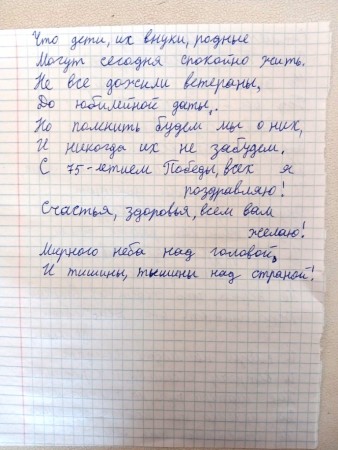 Что дети, их внуки, родные
Могут сегодня спокойно жить.
Не все дожили ветераны,
До юбилейной даты,.
Но помнить будем мы о них,
И никогда их не забудем.
С 75-летием Победы, всех я
поздравляю!
Счастья, здоровья, всем вам
желаю!
Мирного неба над головой,
И тишины, тишины над страной!